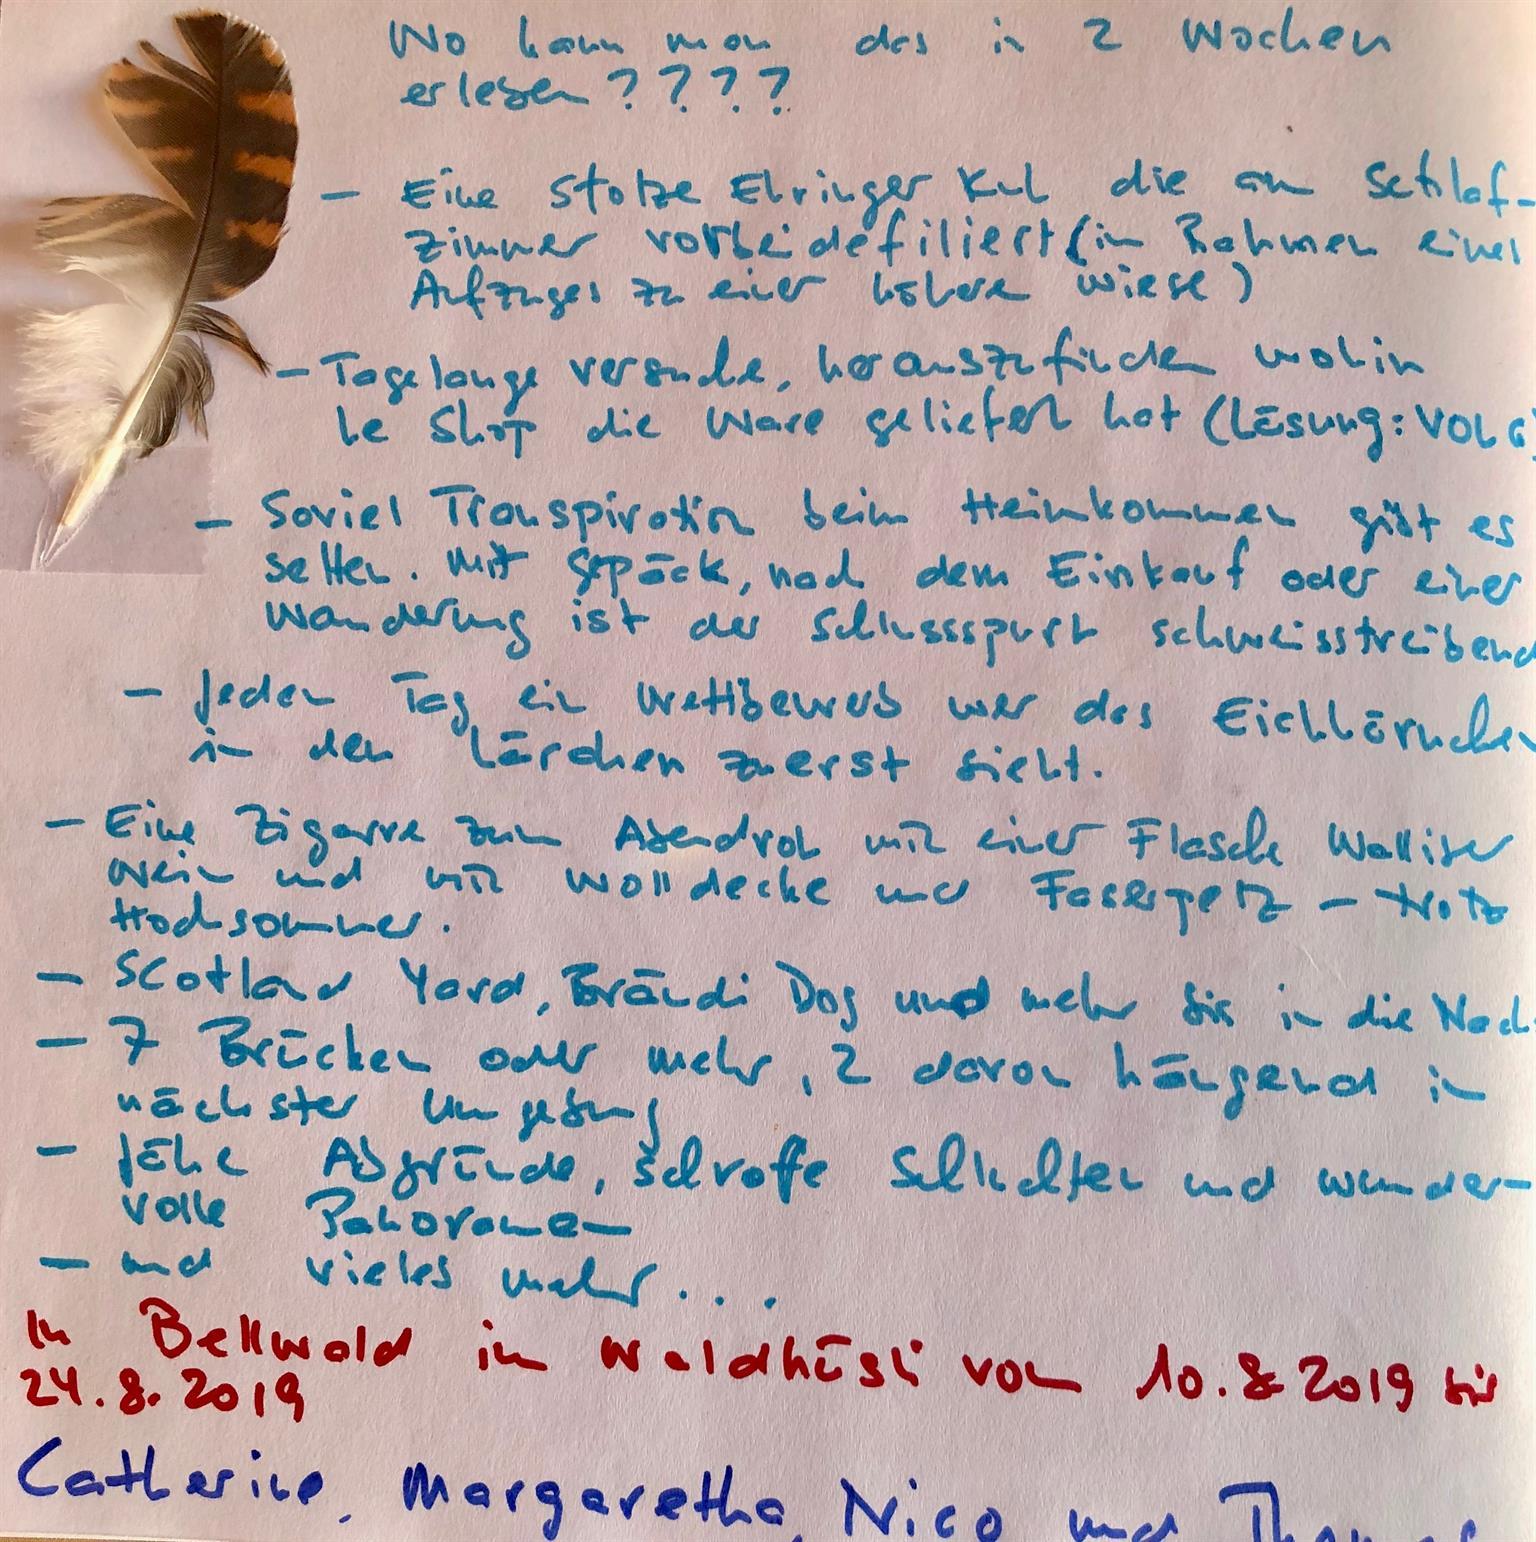 Wo kann man das in 2 Wochen
erleben ????
- Eine stolze Ehringer Kuh die am Schlaf-
zimmer vorbeidefiliert (im Rahmen eines
Aufzuges zu einer höhere Wiese)
- Tagelange versuche, herauszufinden wohin
Le Shop die Ware geliefert hat (Lösung: VOLG)
- Soviel Transpiration beim Heimkommen gibt es
selten. Mit Gepäck, nach dem Einkauf oder einer
Wanderung ist der Schlussspurt schweisstreibend
- Jeden Tag ein Wettbewerb wer das Eichhörnchen
in den Lärchen zuerst sieht.
- Eine Zigarre zum Abendrot mit einer Flasche Walliser
Wein und mit Wolldecke und Faserpelz - trotz
Hochsommer.
- Scotland Yard, Brändi Dog und mehr bis in die Nach
- 7 Brücken oder mehr, 2 davon hängend in
nächster Umgebung
- Jähe Abgründe, schroffe Schluchten und wunder-
volle Panoramen
- und vieles mehr...
In Bellwald im Waldhüsli vom 10.8.2019 bis
24.8.2019
Catherine, Margaretha, Nico und Thomas